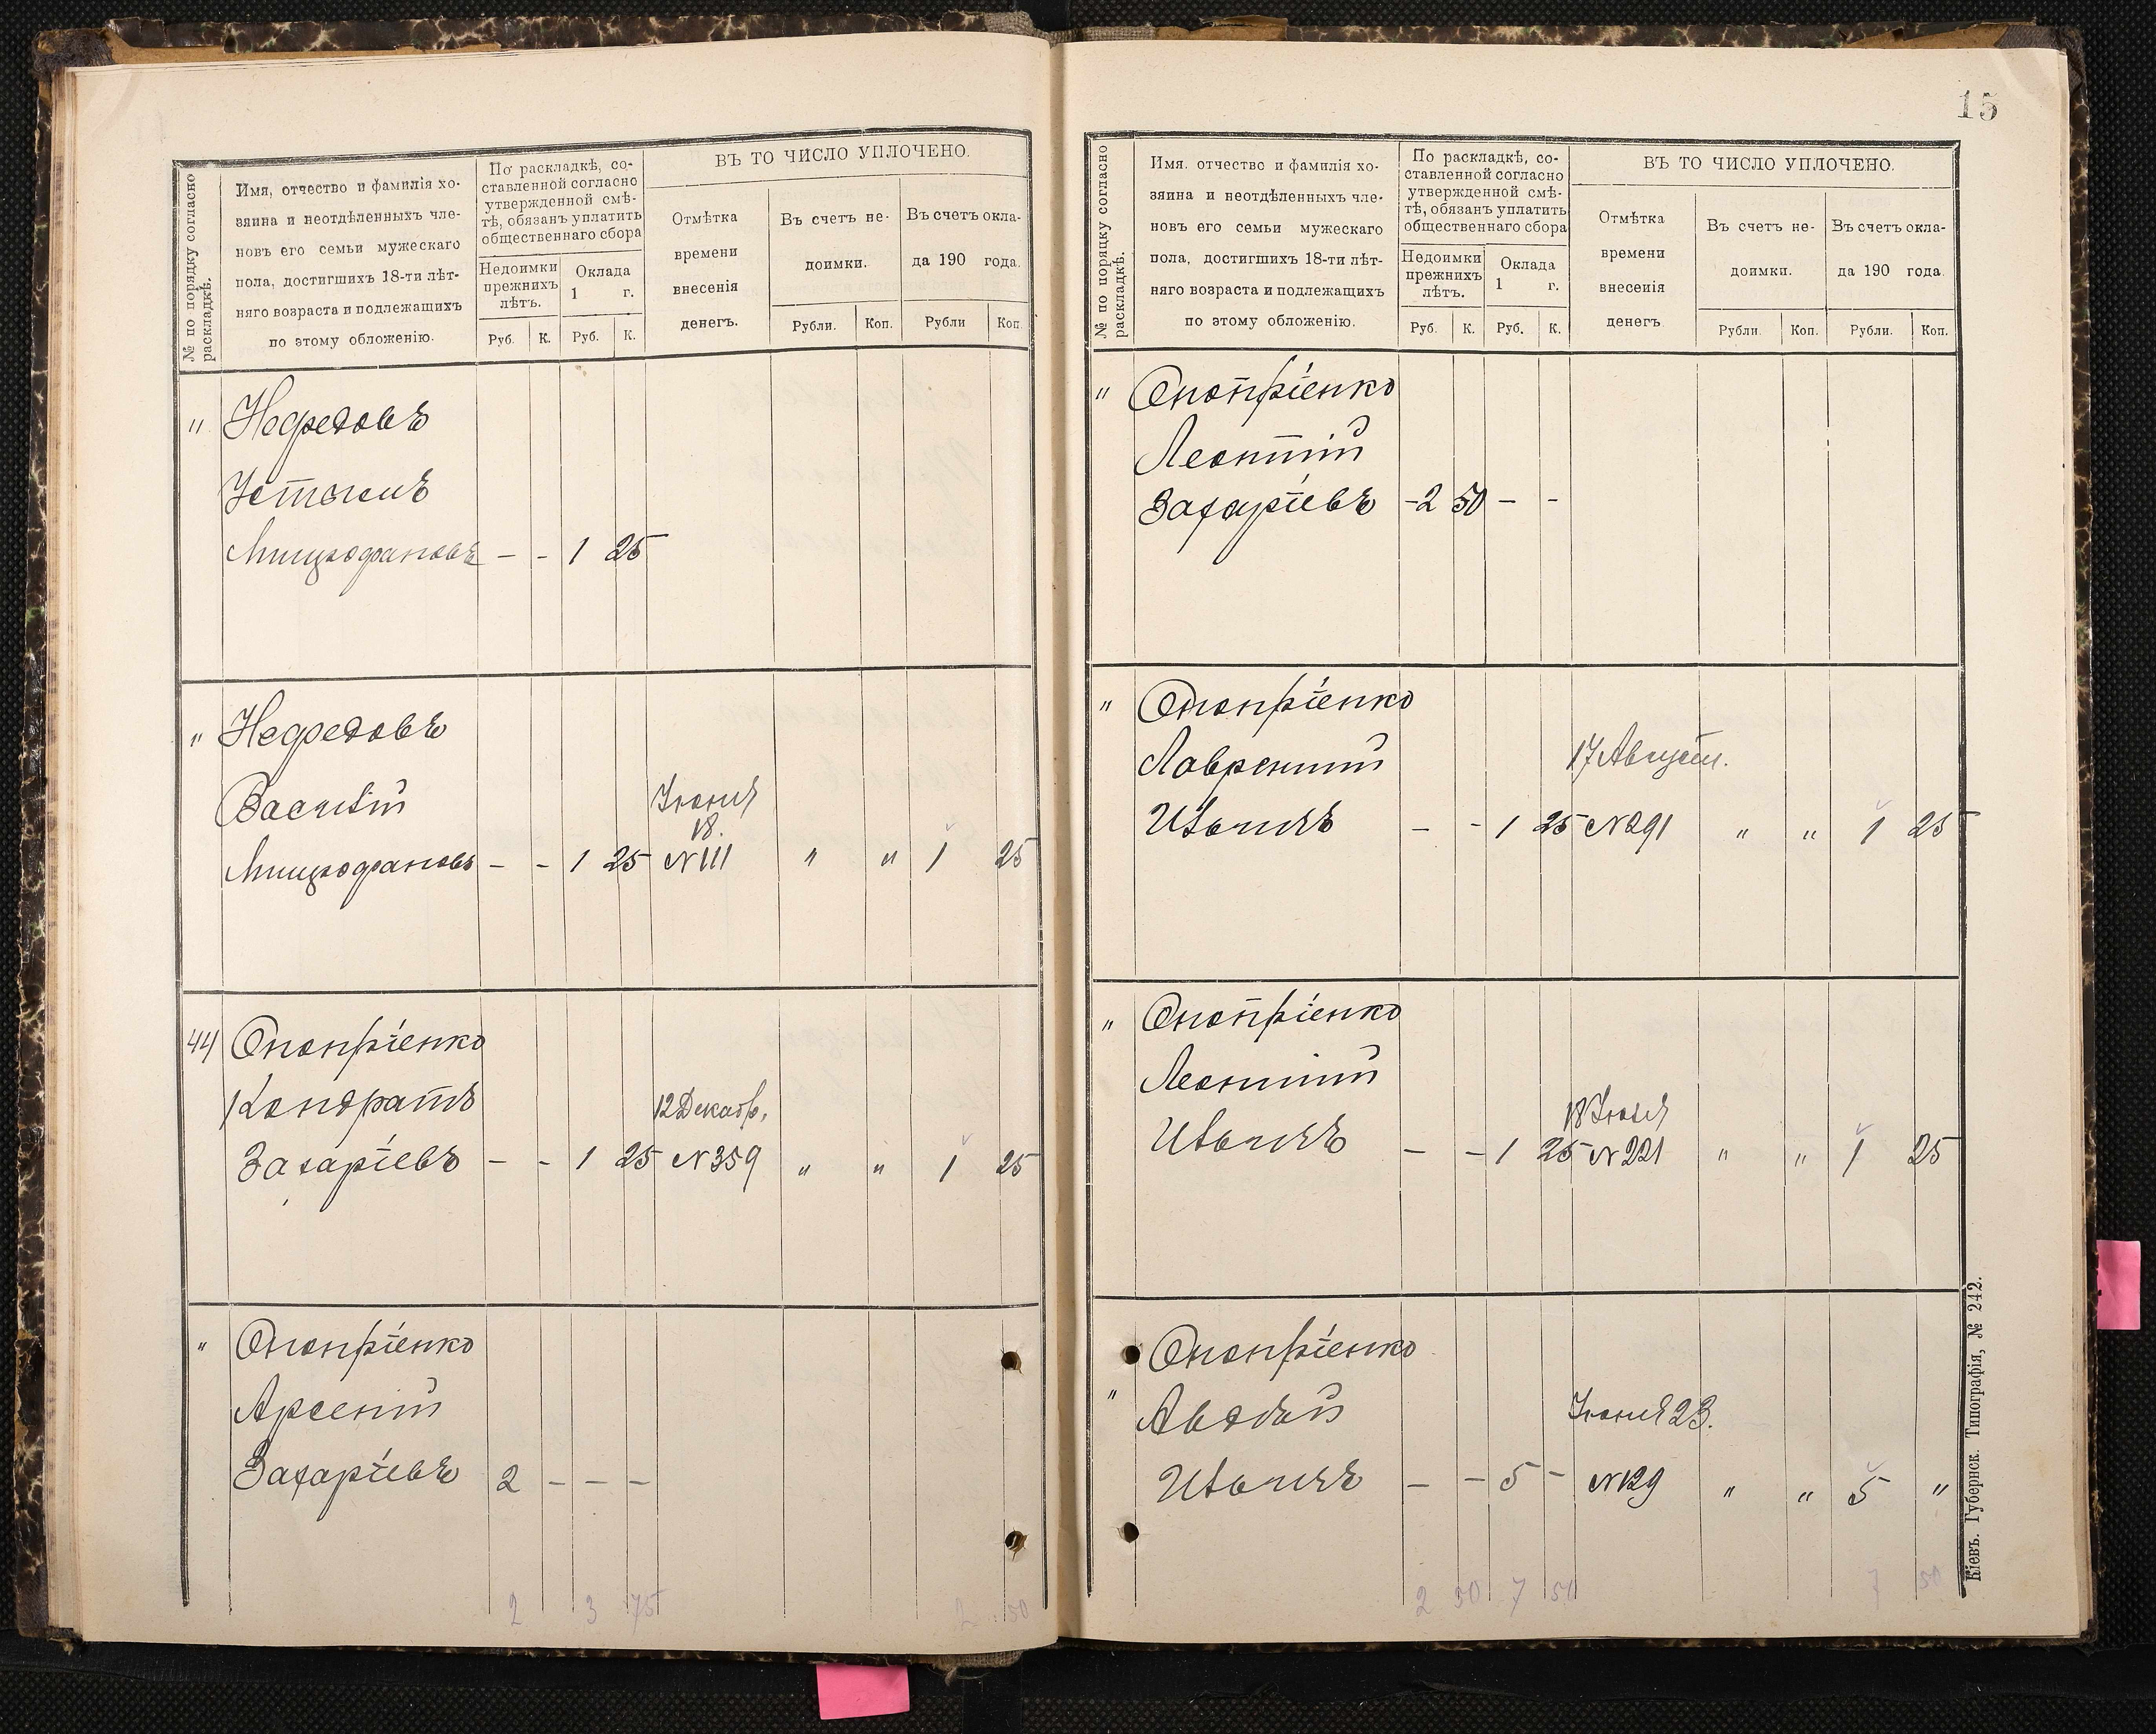 № по порядку согласно
раскладкѣ.
Имя, отчество и фамилія хо-
зяина и неотдѣленныхъ чле-
новъ его семьи мужескаго
пола, достигшихъ 18-ти лѣт-
няго возраста и подлежащихъ
по этому обложенію.
По раскладкѣ, со-
ставленной согласно
утвержденной смѣ-
тѣ, обязанъ уплатить
общественнаго сбора
Недоимки
прежнихъ
лѣтъ.
Оклада
1 г.
Руб. К. Руб. К.
ВЪ ТО ЧИСЛО УПЛОЧЕНО.
Отмѣтка
времени
внесенія
денегъ.
Въ счетъ не-
доимки.
Въ счетъ окла-
да 190 года.
Рубли. Коп. Рубли Коп.
" Нефедовъ
Устинъ
Митрофановъ - - 1 25
" Нефедовъ
Василій
Іюня
18.
Митрофановъ - - 1 25 №111 " " 1 25
44 Оноприенко
Кондратъ
12 Декабр.
Захаріевъ - - 1 25 №359 " " 1 25
" Онопріенко
Арсеній
Захаріевъ 2 - - -
2 3 75 2 50
15
№ по порядку согласно
раскладкѣ.
Имя. отчество и фамилія хо-
зяина и неотдѣленныхъ чле-
новъ его семьи мужескаго
пола, достигшихъ 18-ти лѣт-
няго возраста и подлежащихъ
по этому обложенію.
По раскладкѣ, со-
ставленной согласно
утвержденной смѣ-
тѣ, обязанъ уплатить
общественнаго сбора
Недоимки
прежнихъ
лѣтъ.
Оклада
1 г.
Руб. К. Руб. К.
ВЪ ТО ЧИСЛО УПЛОЧЕНО.
Отмѣтка
времени
внесенія
денегъ
Въ счетъ не-
доимки.
Въ счетъ окла-
да 190 года.
Рубли Коп. Рубли. Коп.
" Онопріенко
Леонтій
Захаріевъ - 2 50 - -
" Онопріенко
Лаврентій
17 Август.
Ивановъ - - 1 25 №291 " " 1 25
" Онопріенко
Леонтій
Ивановъ - - 1 25 №221 " " 1 25
" Онопріенко
Авдѣй
Іюня 23.
Ивановъ - - 5 - №129 " " 5 "
2 50 7 50 7 50
Кіевъ. Губернск. Типографія, № 242.